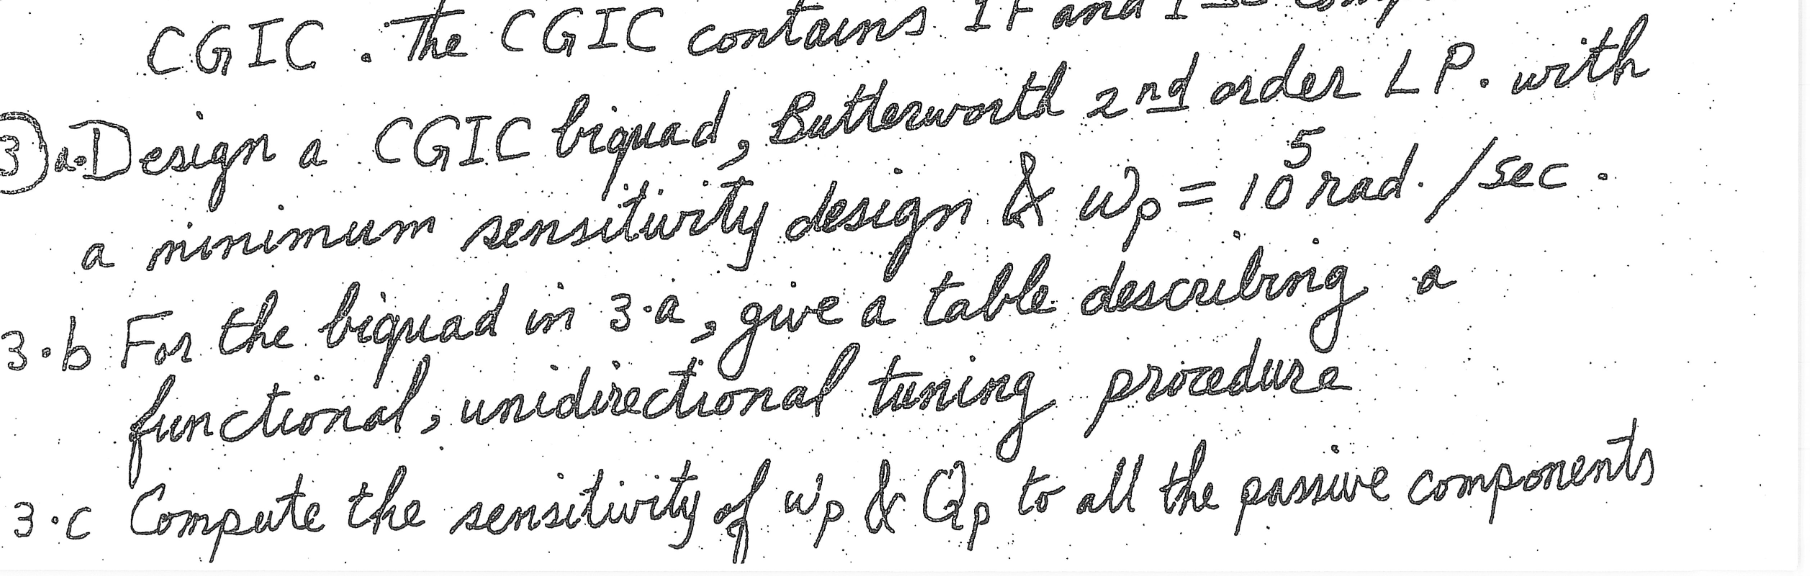 CGIC. The CGIC contains 1F and 1
3)a. Design a CGIC biquad, Butterworth 2nd order LP. with
a minimum sensitivity design & ωp = 10⁵ rad./sec.
3.b For the biquad in 3.a, give a table describing a
functional, unidirectional tuning procedure
3.c Compute the sensitivity of ωp & Qp to all the passive components